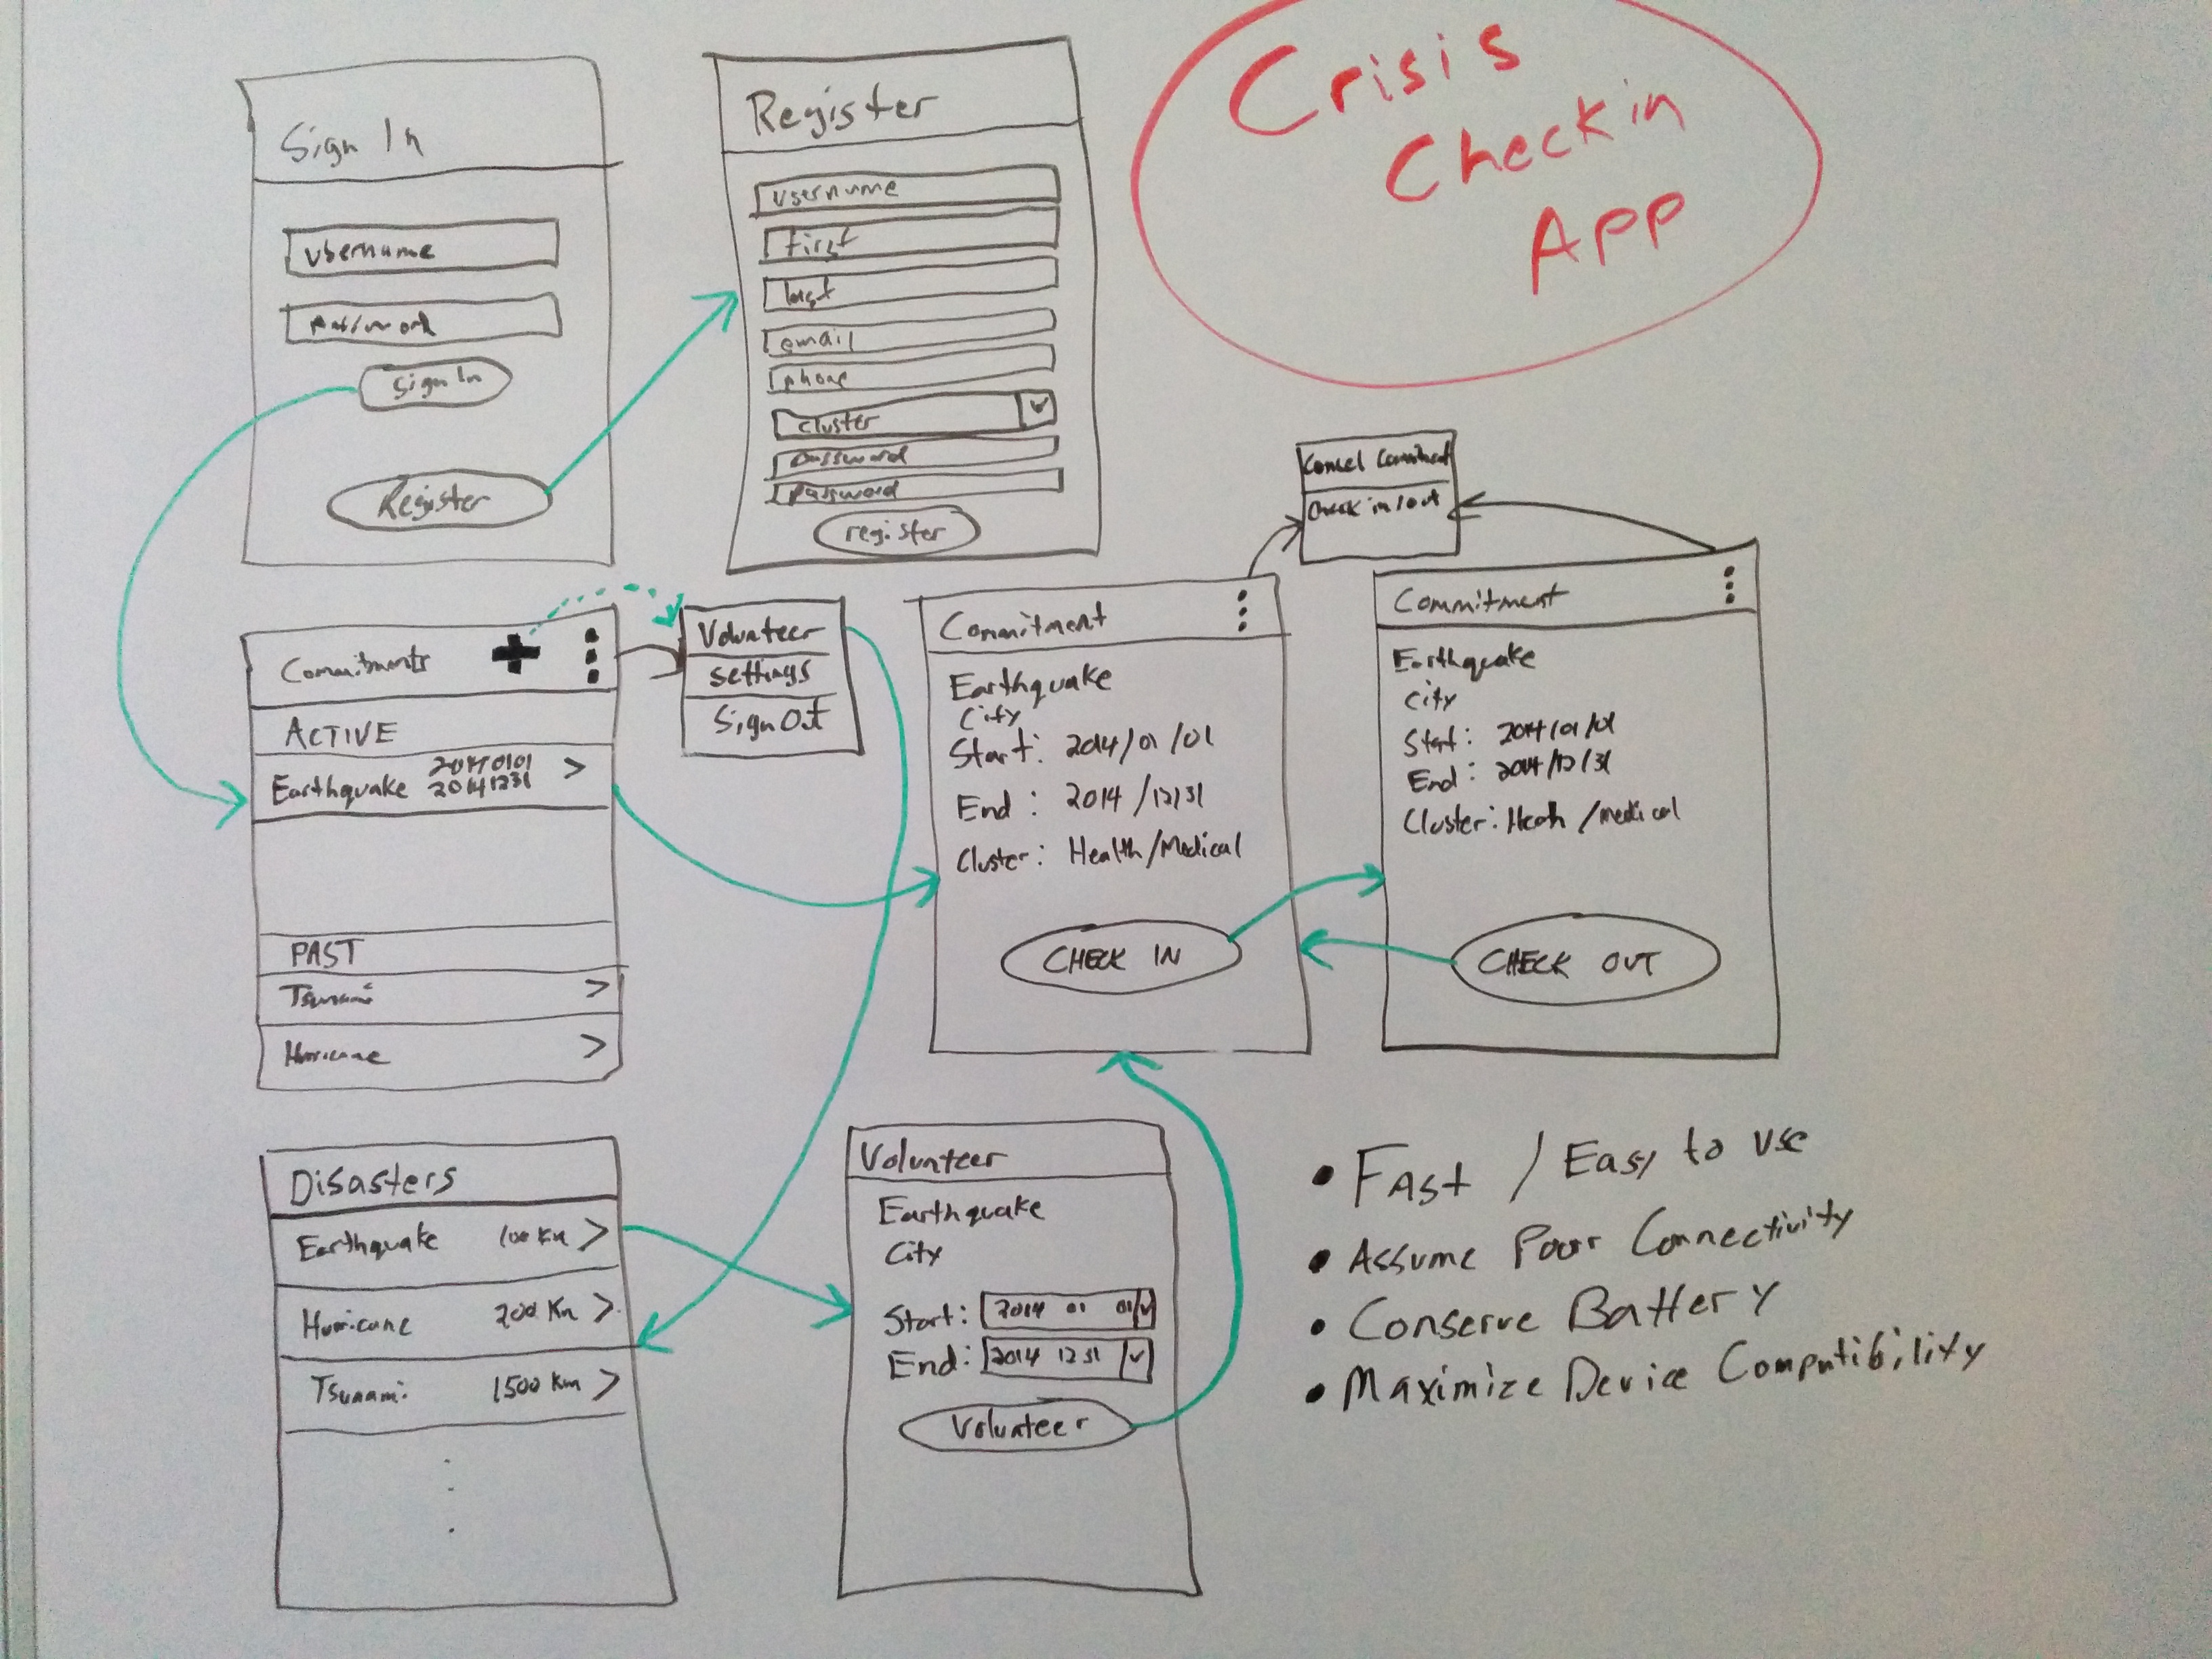 Crisis
Checkin
App
Sign In
username
password
Sign In
Register
Register
username
first
last
email
phone
cluster
password
password
register
Commitments
ACTIVE
Earthquake 20140101 >
20141231
PAST
Tsunami >
Hurricane >
Volunteer
Settings
Sign Out
Cancel Commitment
Check in/out
Commitment
Earthquake
City
Start: 2014/01/01
End: 2014/12/31
Cluster: Health/Medical
CHECK IN
Commitment
Earthquake
City
Start: 2014/01/01
End: 2014/12/31
Cluster: Heath/medical
CHECK OUT
Disasters
Earthquake 100 Km >
Hurricane 200 Km >
Tsunami 1500 Km >
Volunteer
Earthquake
City
Start: 2014 01 01
End: 2014 12 31
Volunteer
• Fast / Easy to use
• Assume Poor Connectivity
• Conserve Battery
• Maximize Device Computibility